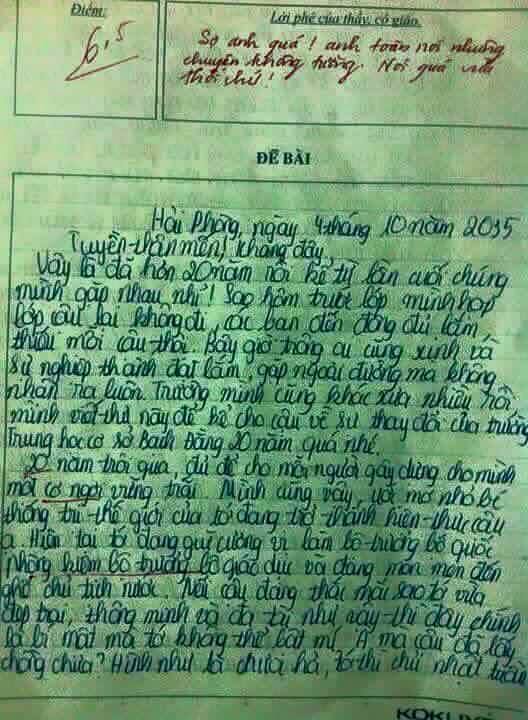 Điểm:
Lời phê của thầy, cô giáo.
6,5
Sợ anh quá! anh toàn nói những
chuyện không tưởng. Nói quá vừa
thôi chứ!
ĐỀ BÀI
Hải Phòng, ngày 4 tháng 10 năm 2035
Tuyền thân mến,
Vậy là đã hơn 20 năm rồi kể từ lần cuối chúng
mình gặp nhau nhỉ! Sao hôm trước lớp mình họp
lớp cậu lại không đi, các bạn đến đông đủ lắm
thiếu mỗi cậu thôi. Bây giờ trông cu cũng xinh và
sự nghiệp thành đạt lắm, gặp ngoài đường mà không
nhận ra luôn. Trường mình cũng khác xưa nhiều rồi
mình viết thư này để kể cho cậu về sự thay đổi của trường
Trung học cơ sở Bạch Đằng 20 năm qua nhé.
20 năm trôi qua, đủ để cho mỗi người gây dựng cho mình
một cơ ngơi vững trãi. Mình cũng vậy, ước mơ nhỏ bé
thống trị thế giới của tớ đang trở thành hiện thực cậu
ạ. Hiện tại tớ đang ở cương vị làm bộ trưởng bộ quốc
phòng kiêm bộ trưởng bộ giáo dục và đang mon men đến
ghế chủ tịch nước. Nếu cậu đang thắc mắc sao tớ vừa
đẹp trai, thông minh và đa tài như vậy thì đây chính
là bí mật mà tớ không thể bật mí. À mà cậu đã lấy
chồng chưa? Hình như là chưa hả, tớ thì chủ nhật tuần